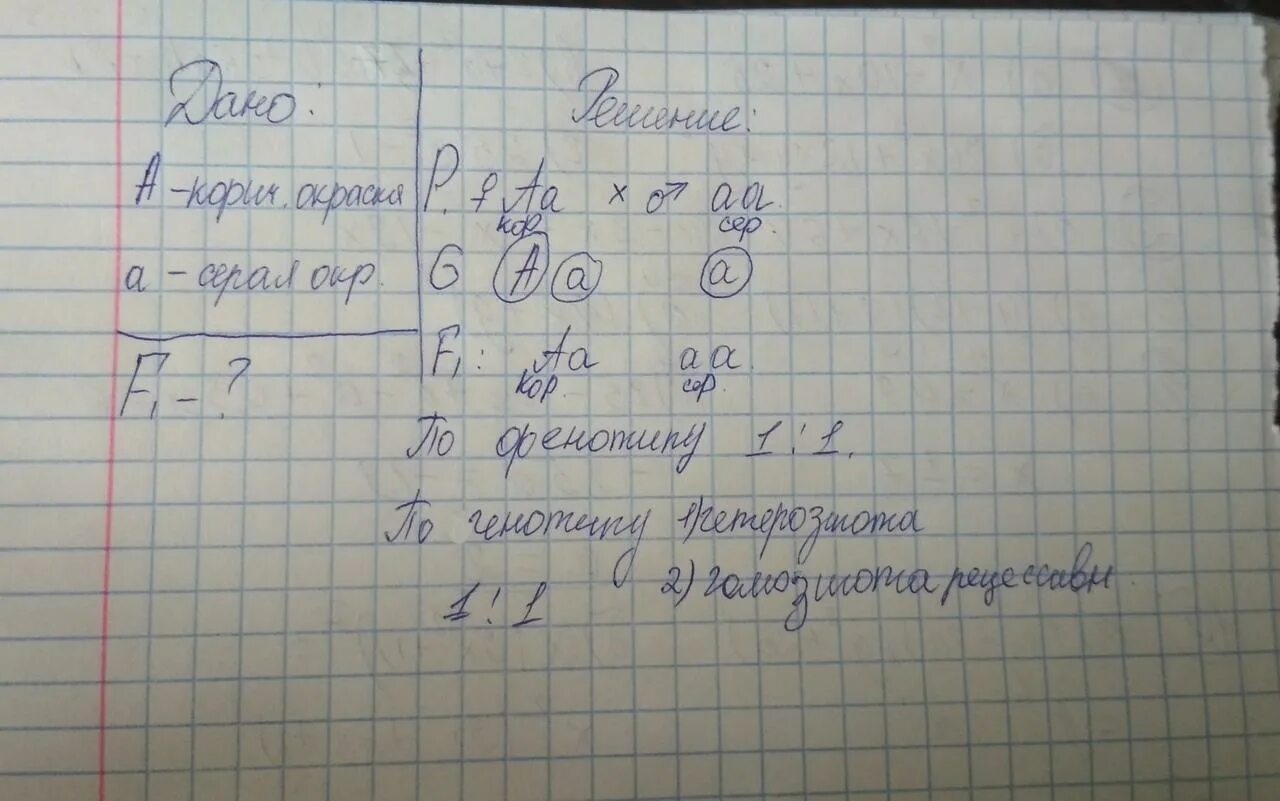 Дано:
А - корич. окраска
а - серая окр.
F₁ - ?
Решение:
P. ♀ Аа × ♂ аа.
кор. сер.
G А а а
F₁: Аа аа.
кор. сер.
По фенотипу 1:1.
По генотипу 1) гетерозигота
2) гомозигота рецессивн.
1:1